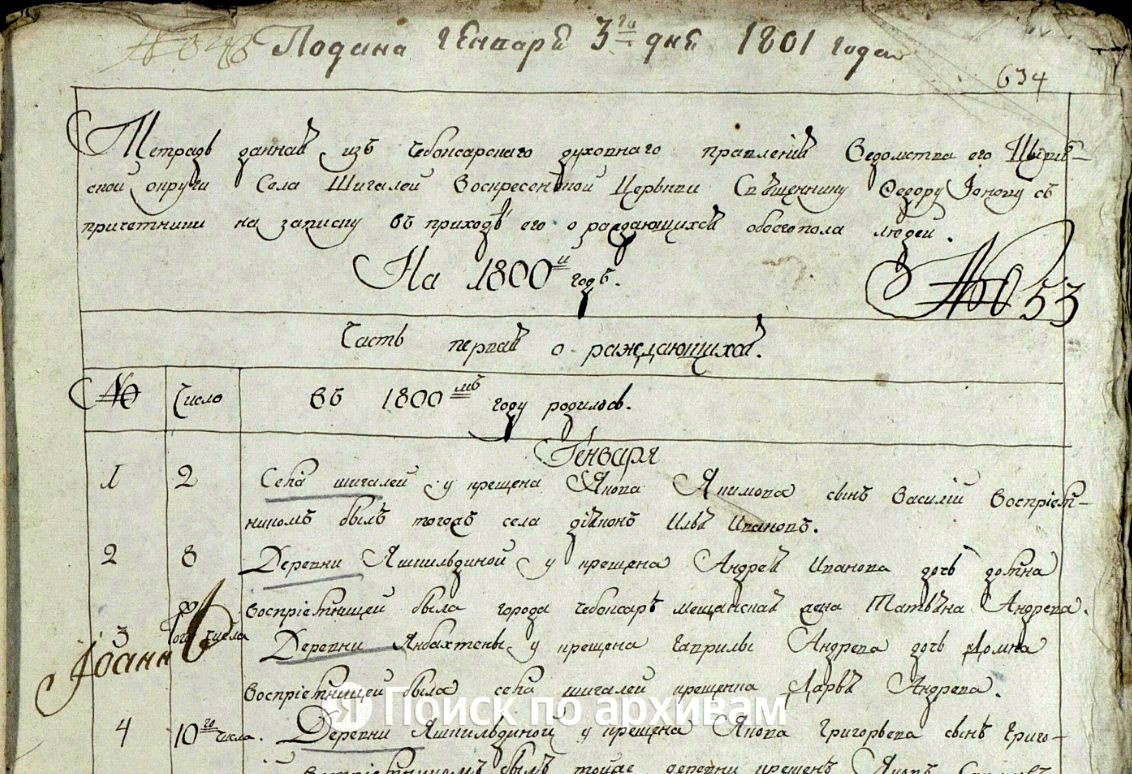 Подана генваря 3го дня 1801 года
634
Тетрадь данная изъ Чебоксарскаго духовнаго правления ведомства его Цывиль-
ской округи Села Шигалей Воскресенской Церкви Священнику Федору Ионову съ
причетники на записку въ приходѣ его о раждающихся обоего пола людей.
На 1800й годъ.
№ 53
Часть первая о раждающихся.
№ Число въ 1800мъ году родилось.
Генваря
1 2 Села шигалей у крещена Якова Акимова сынъ Василий Воспрiем-
никомъ былъ тогожъ села дiяконъ Илья Ивановъ.
2 8 Деревни Яшкильдиной у крещена Андрея Иванова дочь домна
Воспрiемницей была города чебоксаръ мещанская жена Татьяна Андреева.
3 числа Деревни Янбахтены у крещена Гаврилы Андреева дочь Домна
Иоаннъ
Воспрiемницей была села шигалей крещенка Дарья Андреева.
4 10го числа. Деревни Яшкильдиной у крещена Якова Григорьева сынъ Григо-
Воспрiемникомъ былъ тояже деревни крещенъ Яковъ
Поиск по архивам